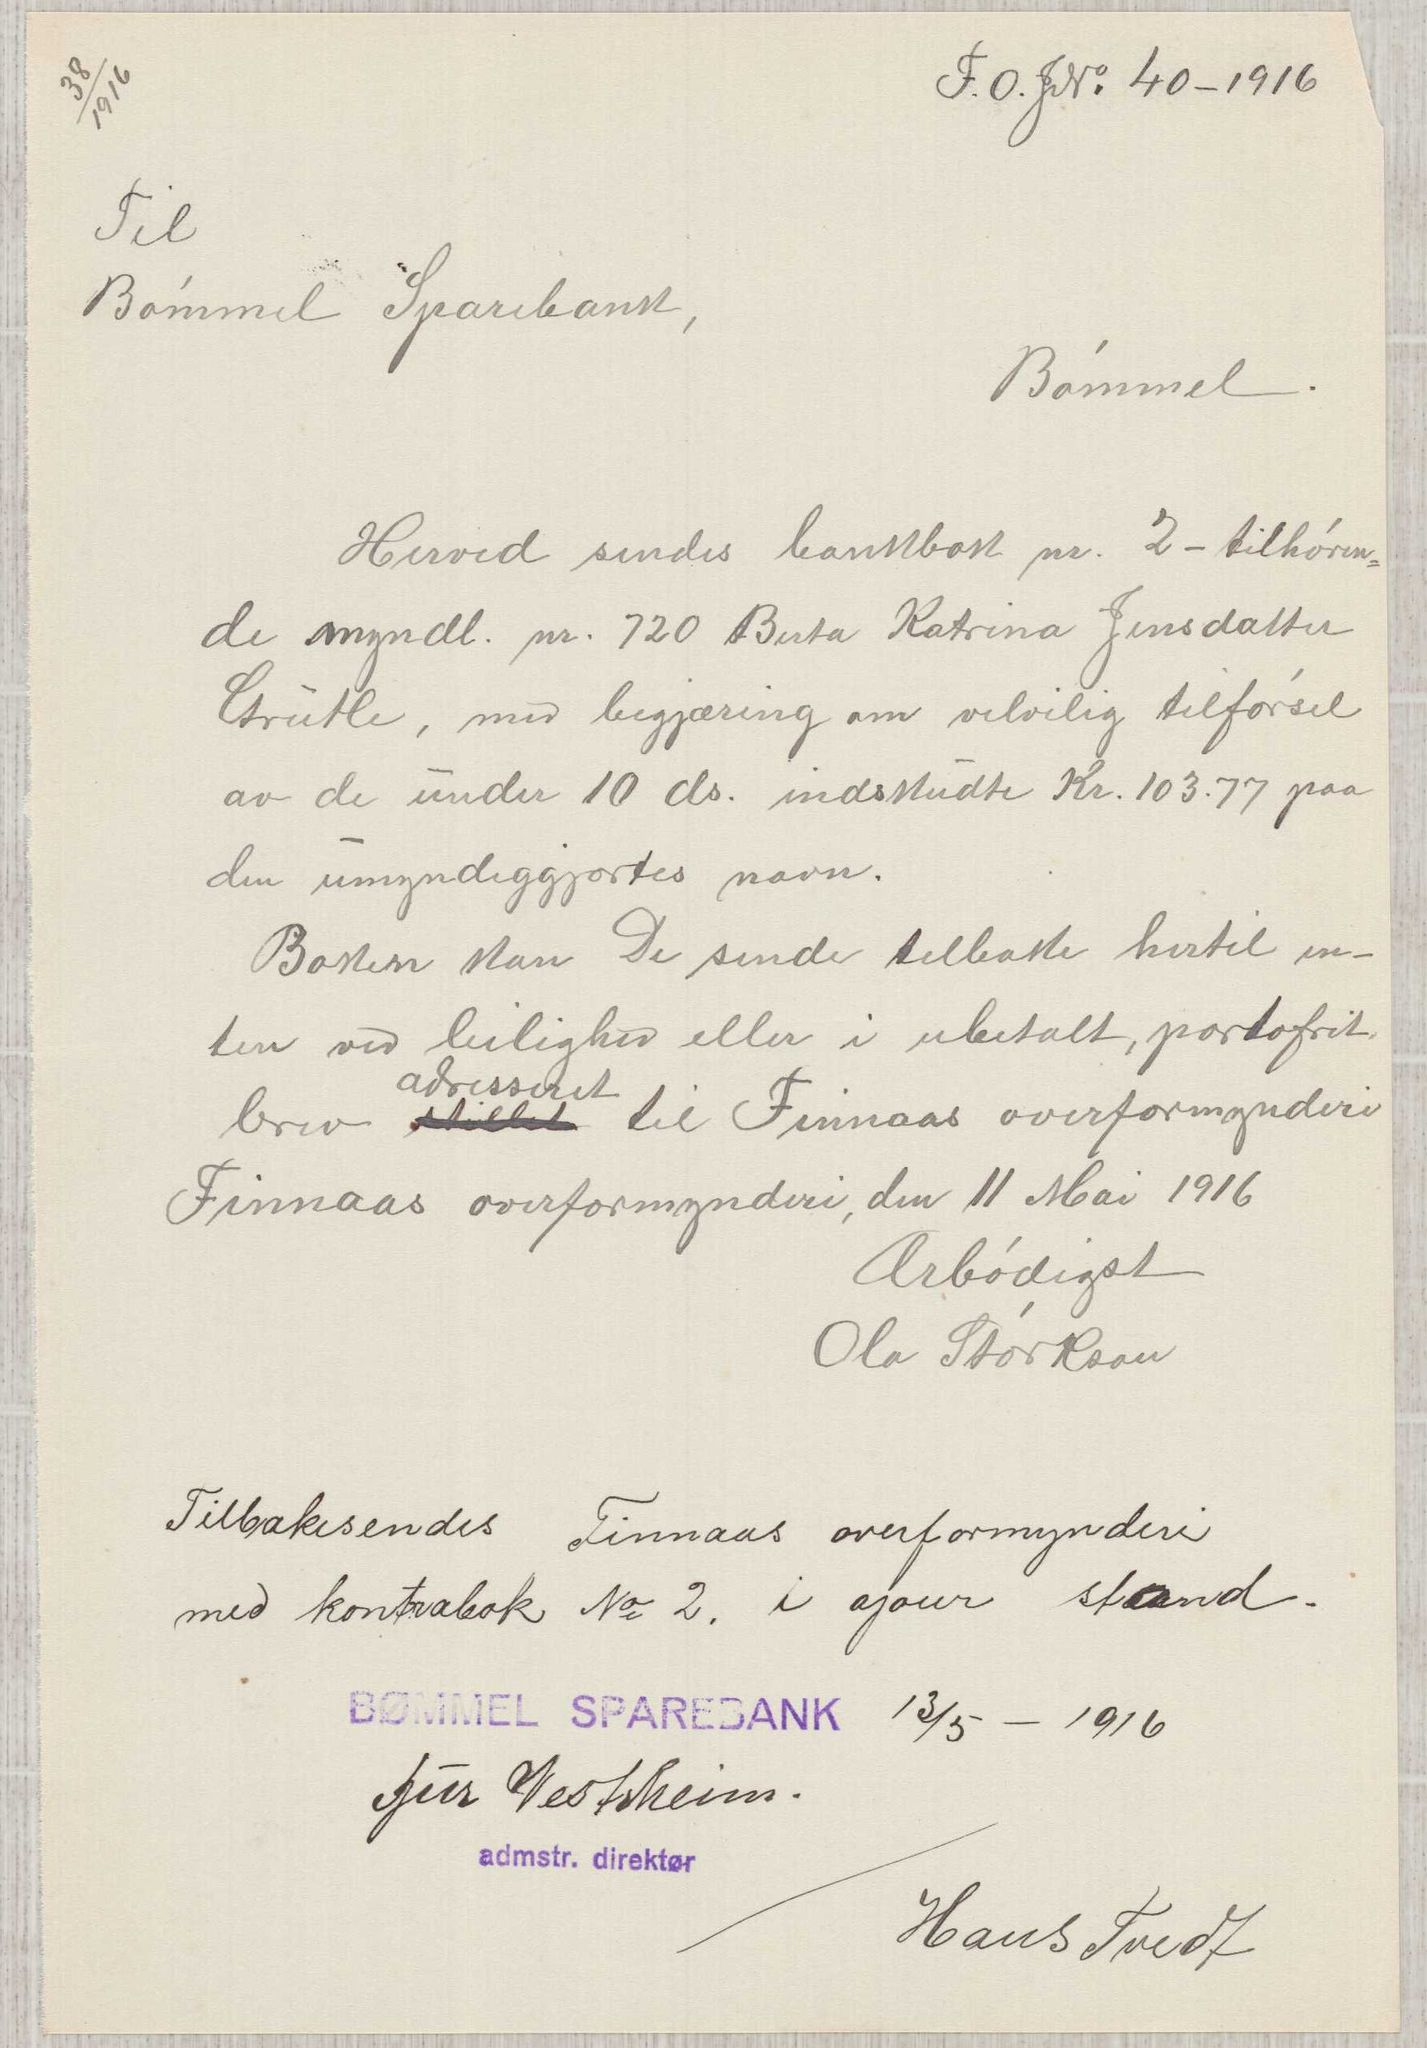 38/1916
F. O. J.No. 40-1916
Til
Bómmel Sparebank,
Bómmel.
Herved sendes bankbok nr. 2 - tilhóren=
de myndl. nr. 720 Berta Katrina Jensdatter
Grütle, med begjæring om velvilig tilfórsel
av de ūnder 10 ds. indskūdte Kr. 103.77 paa
den ūmyndiggjortes navn.
Boken kan De sende tilbake hertil en-
ten ved leilighed eller i ubetalt, portofrit
adresseret
brev stillet til Finnaas overformynderi
Finnaas overformynderi, den 11 Mai 1916
Ærbódigst
Ola Stórkson
Tilbakesendes Finnaas overformynderi
med kontrabok No 2. i ajour stand.
BØMMEL SPAREBANK 13/5 - 1916
Vestvheim.
admstr. direktør
Hans Tvedt